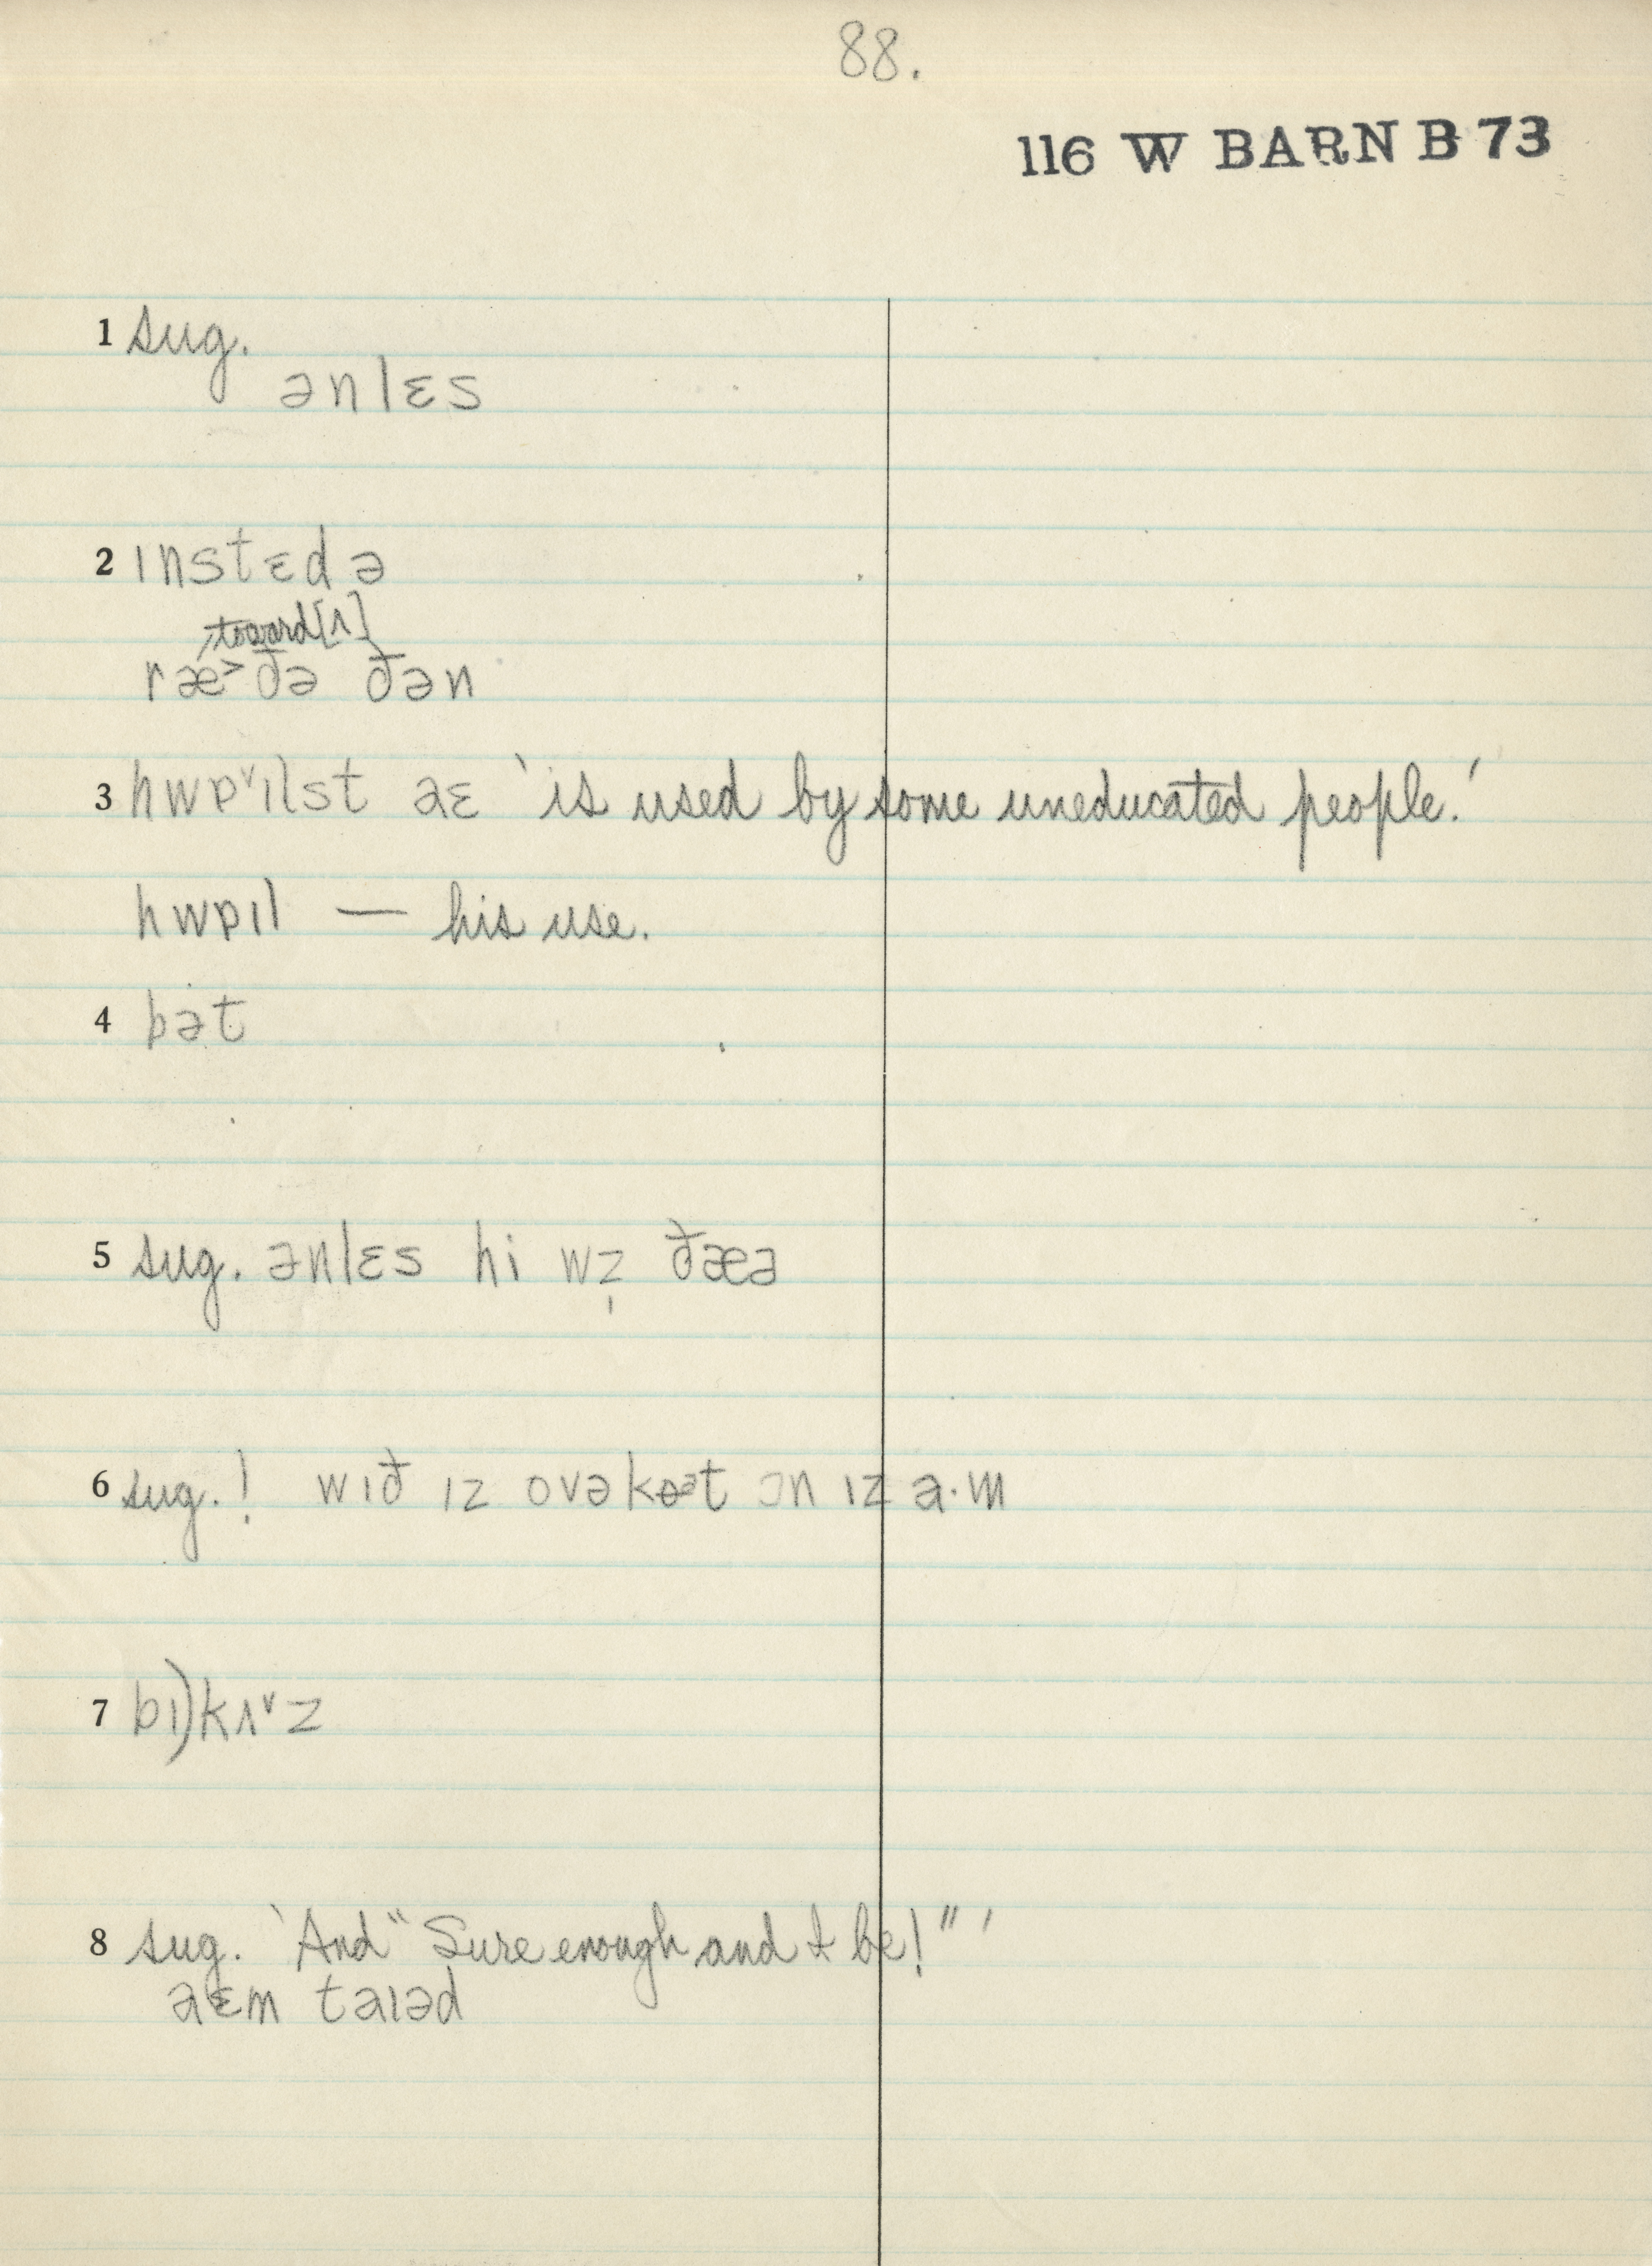 88.
116 W BARN B 73
1 sug.
ənlɛs
2 ɪnstɛd ə
toward [ʌ]
ræ˃ðə ðən
3 hwɒ˅ɪlst aɛ 'is used by some uneducated people.'
hwɒɪl — his use.
4 bət
5 sug. ənlɛs hi wz̩ ðæə
6 sug.! wɪð ɪz ovəkɵət ɔn ɪz a·m
7 bɪ)kʌ˅z
8 sug. 'And "Sure enough and I be!"'
aɛm taɪəd